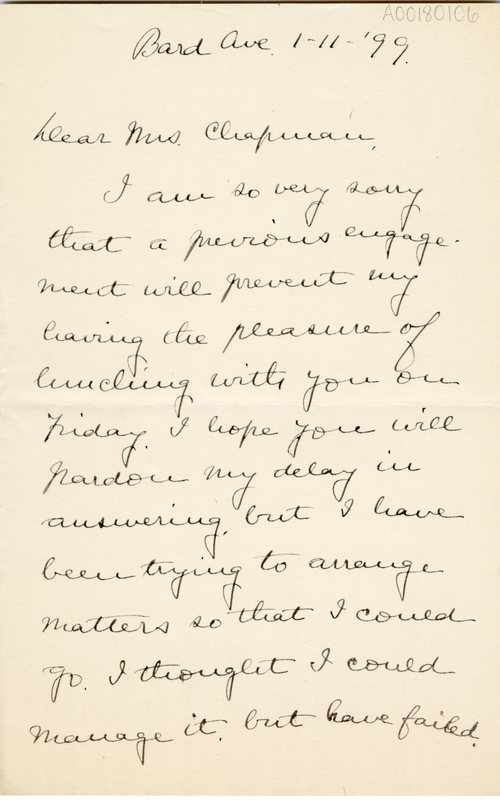 A00180106
Bard Ave. 1-11-'99.
Dear Mrs. Chapman,
I am so very sorry
that a previous engage-
ment will prevent my
having the pleasure of
lunching with you on
Friday. I hope you will
pardon my delay in
answering, but I have
been trying to arrange
matters so that I could
go. I thought I could
manage it, but have failed.